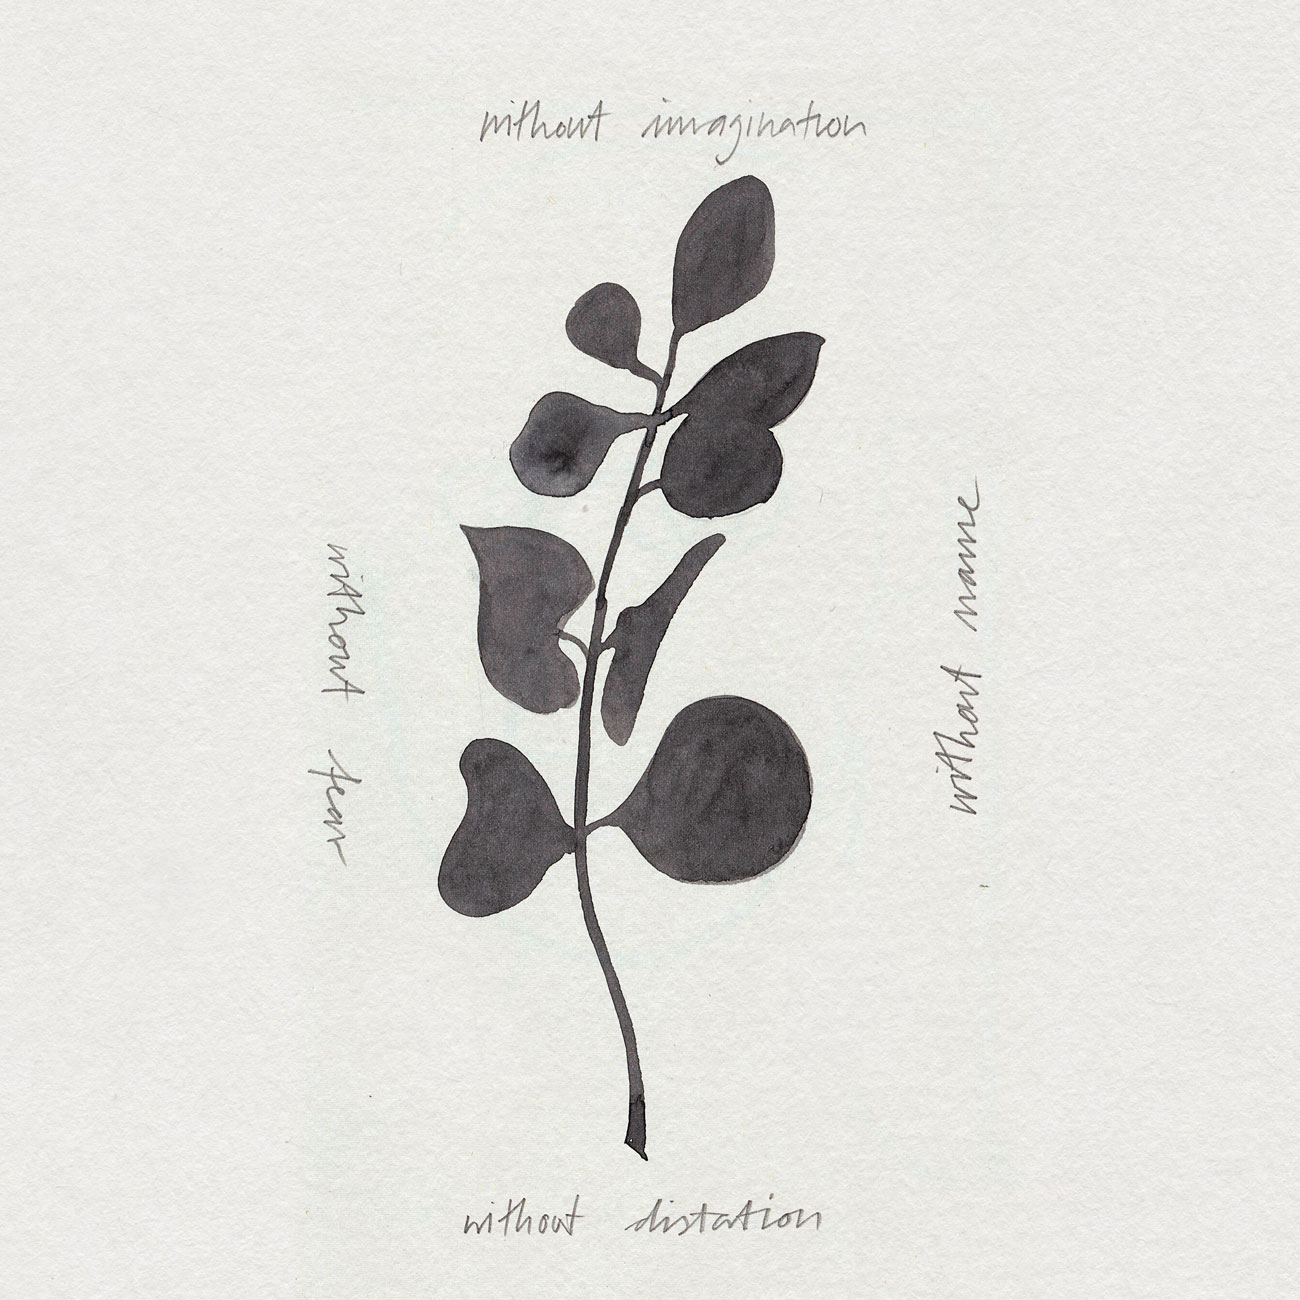 without imagination
without fear
without name
without distation